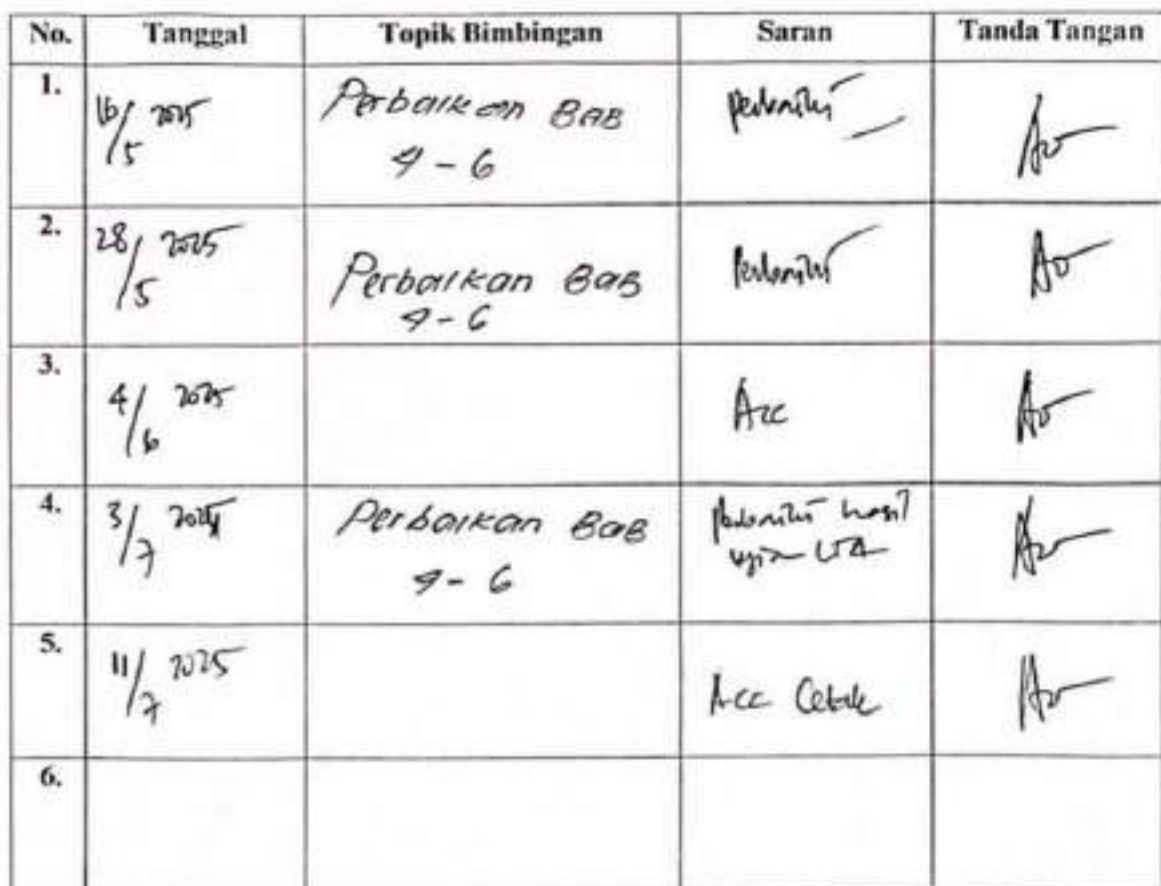 No. Tanggal Topik Bimbingan Saran Tanda Tangan
1. 16/5 2025 Perbaikan BAB perbaiki
4 - 6
2. 28/5 2025 Perbaikan BaB Perbaiki
4 - 6
3. 4/6 2025 Acc
4. 3/7 Perbaikan BaB perbaiki hasil
4 - 6 ujian
5. 11/7 2025 Acc Cetak
6.